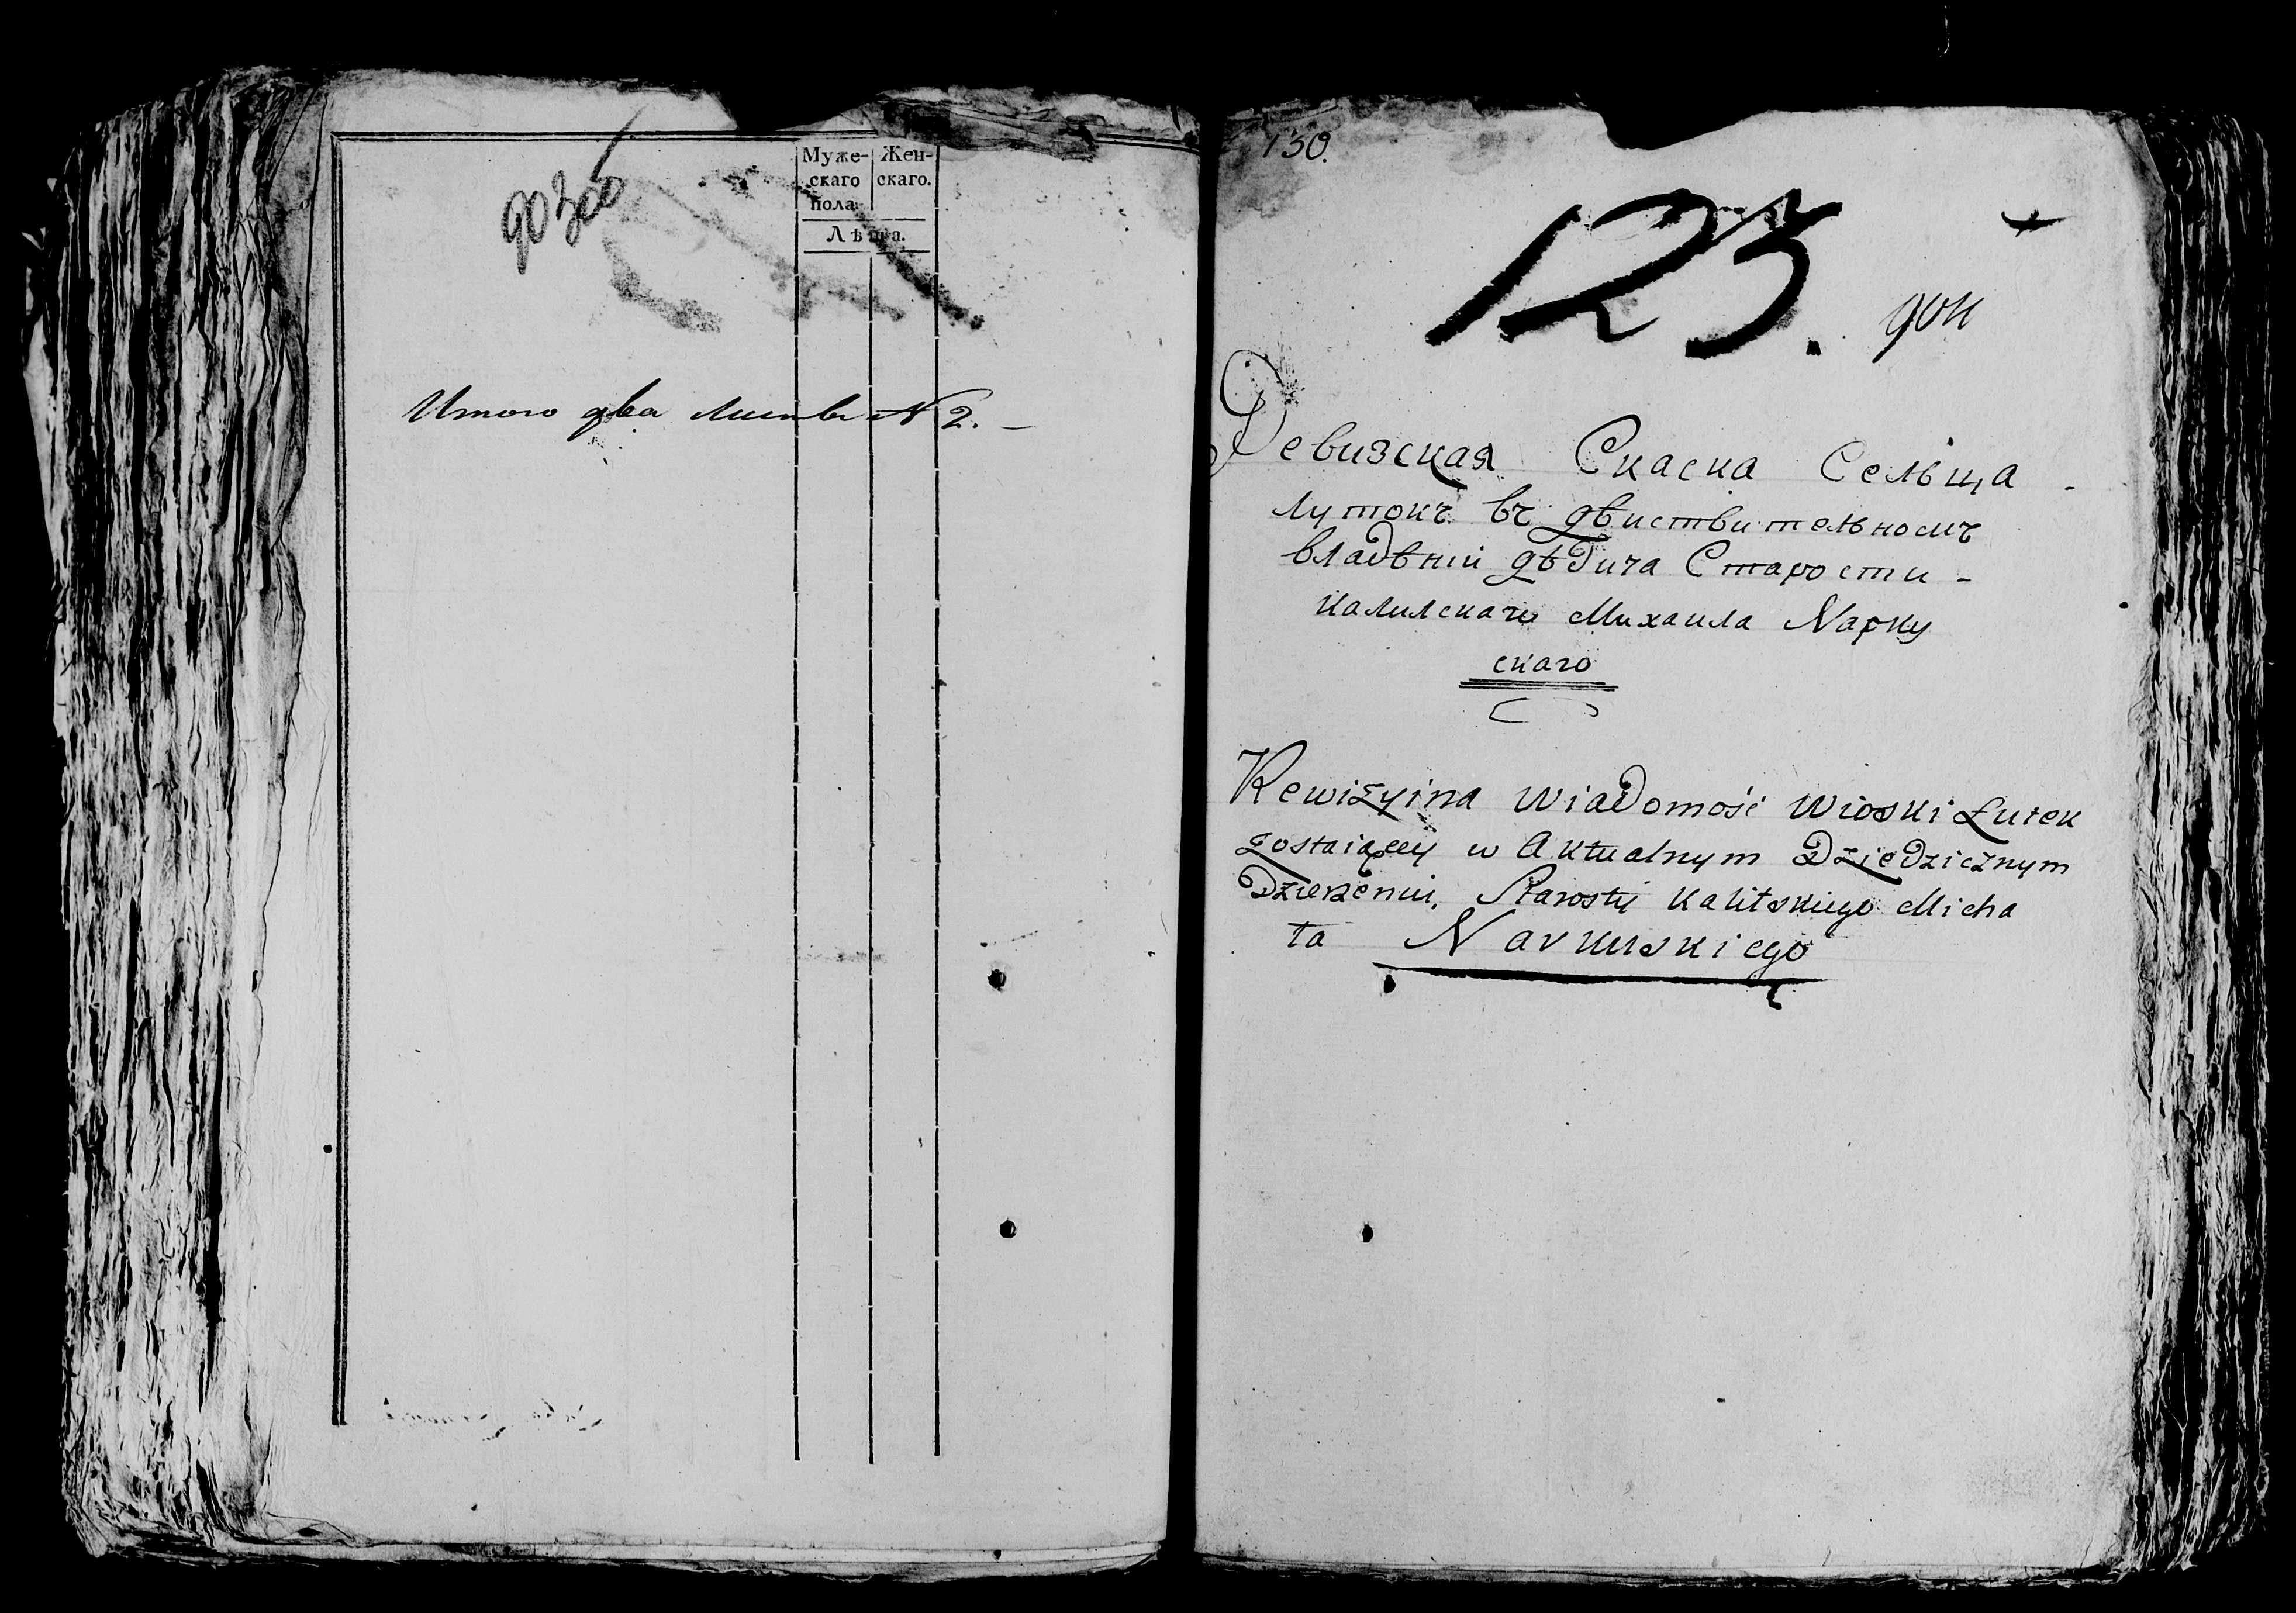 Муже- Жен-
скаго скаго.
пола.
Лѣта.
Итого два листы N 2. –
130.
123.
Ревизская Скаска Сельца -
Лутокъ въ дѣиствительномъ
владѣнии дѣдича Старости -
Калилскаго Михаила Nарку
скаго
Rewizyina Wiadomość Wioski Łutek
zostaiącey w Aktualnym Dziedzicznym
Dzierżeniu, Starosty Kalilskiego Micha
ła Narkuskiego